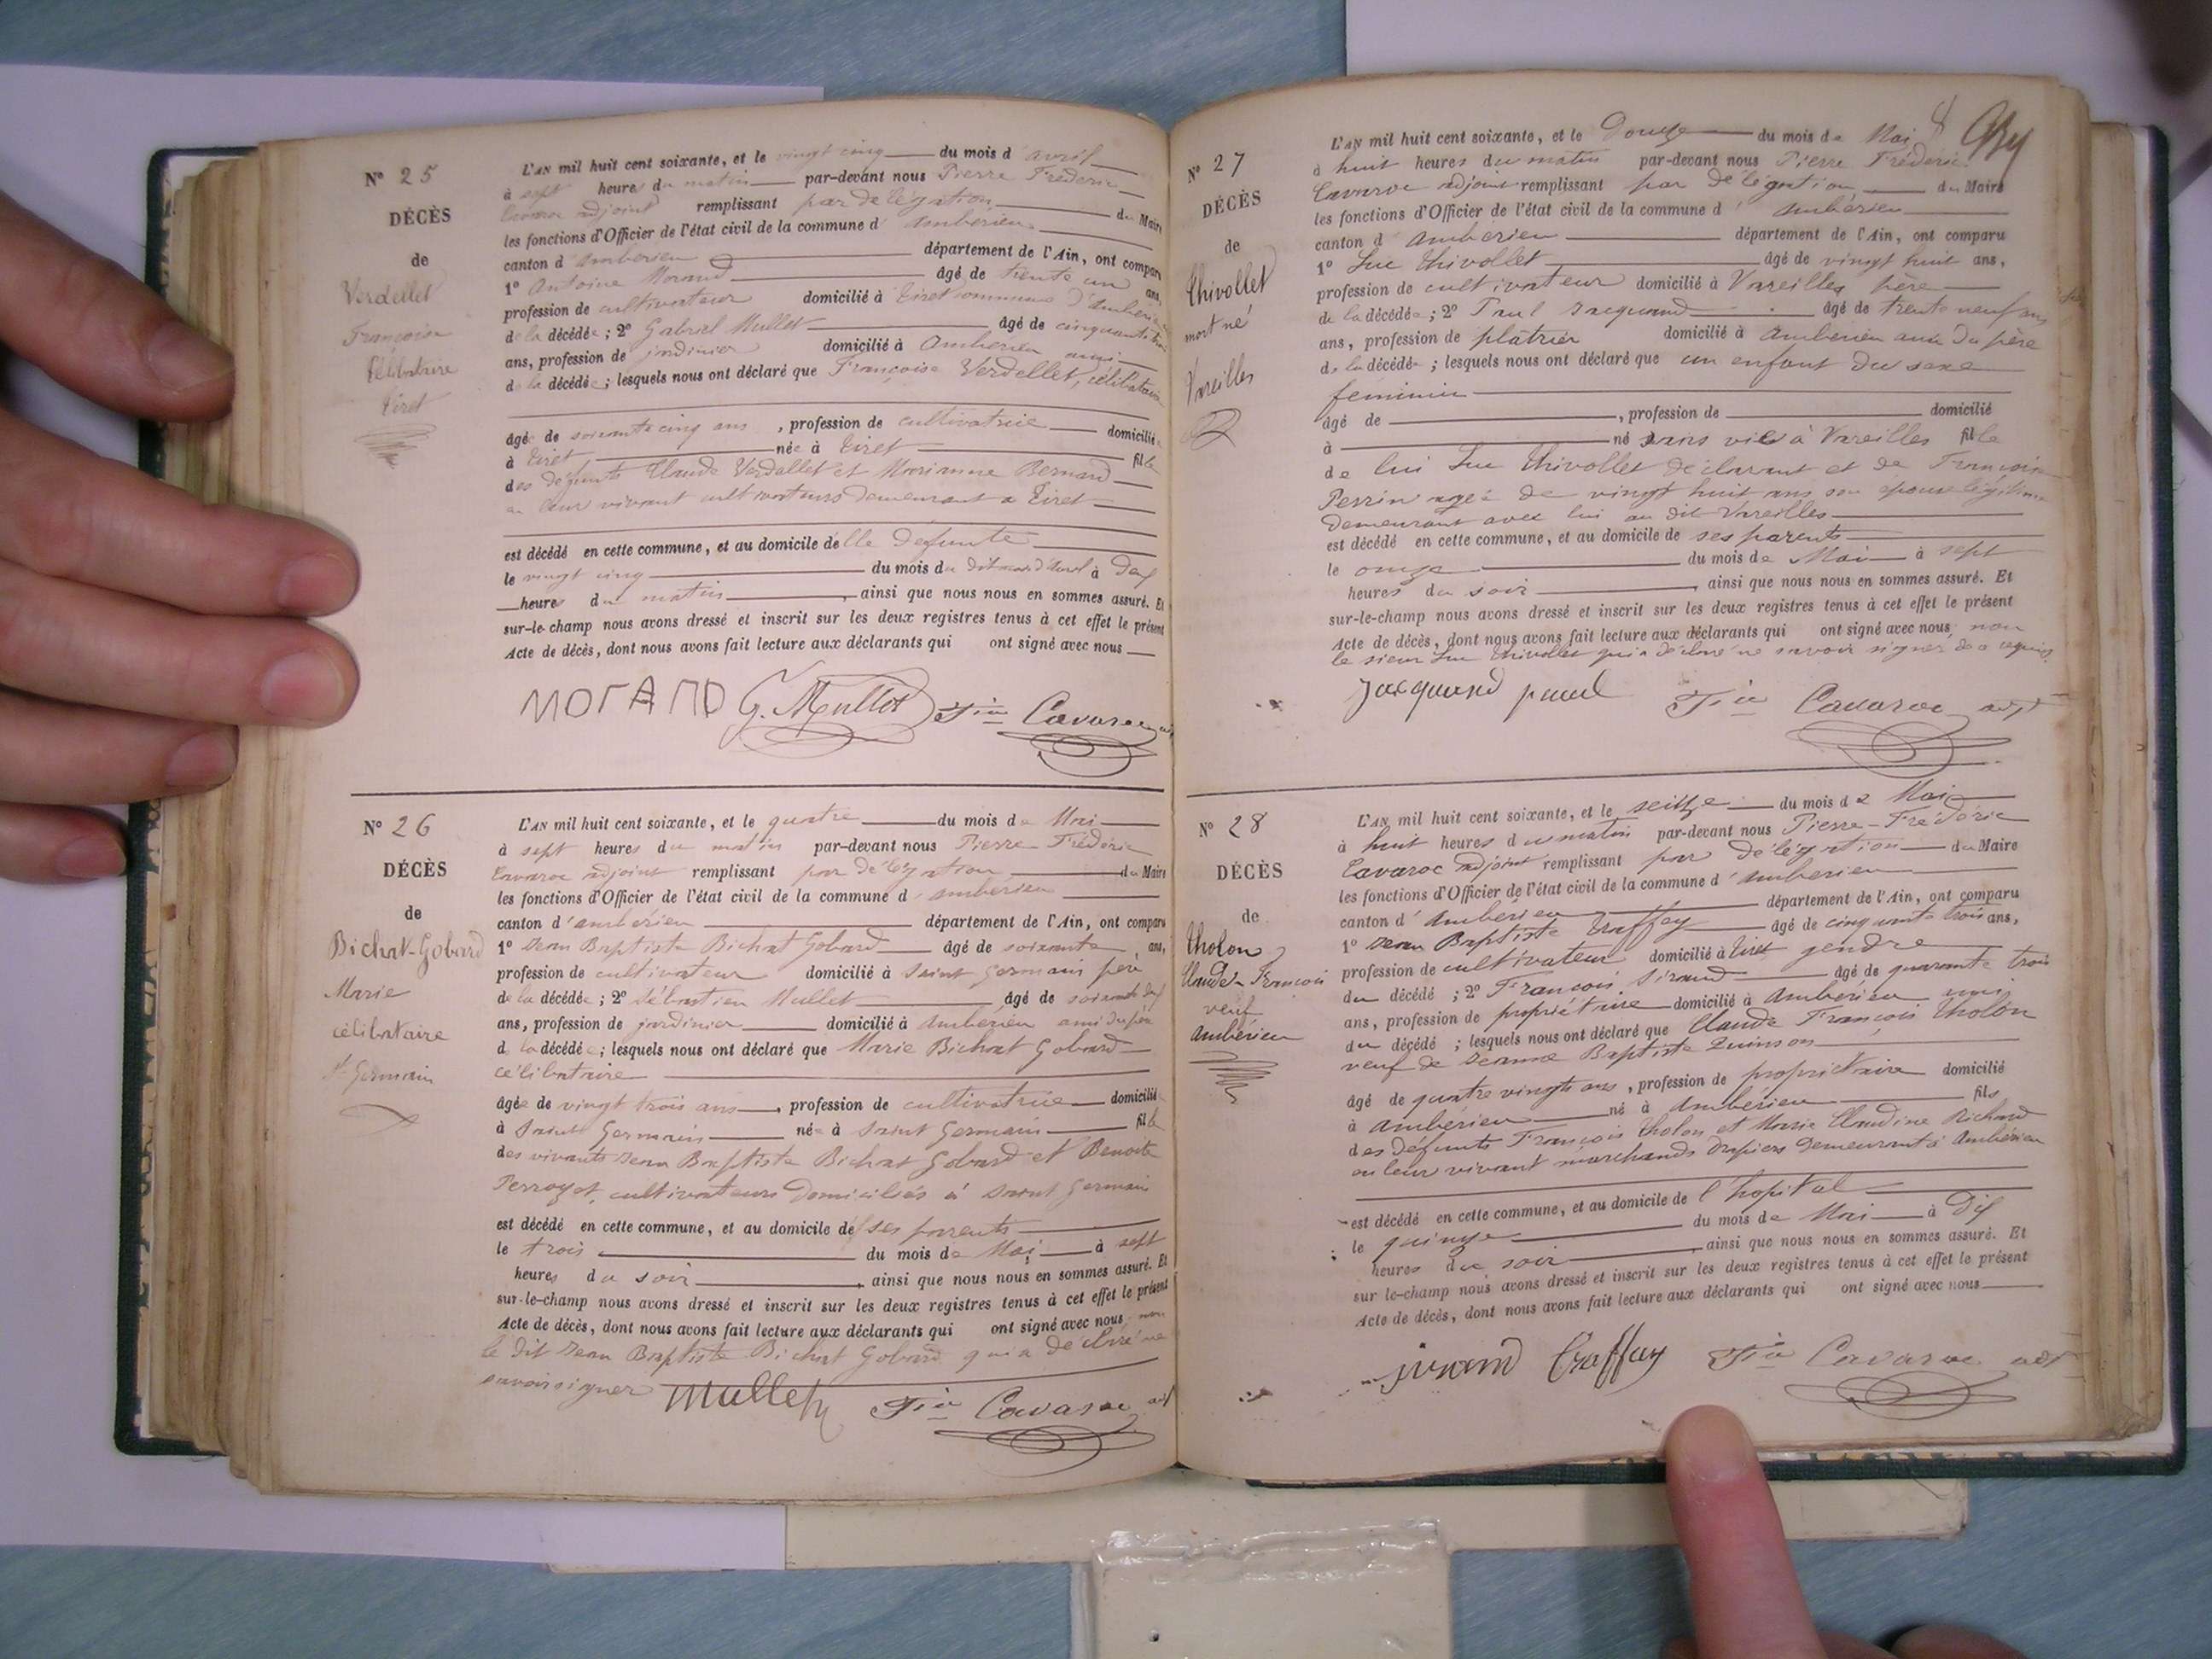 N° 25
DÉCÈS
de
Verdellet
Françoise
Célibataire
Tiret
L'AN mil huit cent soixante, et le vingt cinq du mois d'avril
à sept heures du matin par-devant nous Pierre Fréderic
Cavaroc adjoint remplissant par délégation du Maire
les fonctions d'Officier de l'état civil de la commune d'Ambérieu
canton d'Ambérieu département de l'Ain, ont comparu
1° Antoine Morand âgé de trente un ans,
profession de cultivateur domicilié à Tiret commune d'Ambérieu
de la décédée ; 2° Gabriel Mullet âgé de cinquante trois
ans, profession de jardinier domicilié à Ambérieu ami
de la décédée ; lesquels nous ont déclaré que Françoise Verdellet, célibataire
âgée de soixante cinq ans , profession de cultivatrice domiciliée
à Tiret née à Tiret fille
des défunts Claude Verdellet et Marianne Bernard
en leur vivant cultivateurs demeurant a Tiret
est décédé en cette commune, et au domicile de lle défunte
le vingt cinq du mois du dit mois d'avril à deux
heures du matin , ainsi que nous nous en sommes assuré. Et
sur-le-champ nous avons dressé et inscrit sur les deux registres tenus à cet effet le présent
Acte de décès, dont nous avons fait lecture aux déclarants qui ont signé avec nous
MOrAnD G. Mullet Fic Cavaroc adj
N° 26
DÉCÈS
de
Bichat-Gobard
Marie
célibataire
St Germain
L'AN mil huit cent soixante, et le quatre du mois de Mai
à sept heures du matin par-devant nous Pierre Fréderic
Cavaroc adjoint remplissant par délégation du Maire
les fonctions d'Officier de l'état civil de la commune d'Ambérieu
canton d'Ambérieu département de l'Ain, ont comparu
1° Jean Baptiste Bichat Gobard âgé de soixante ans,
profession de cultivateur domicilié à Saint Germain père
de la décédée ; 2° Sébastien Mullet âgé de soixante
ans, profession de jardinier domicilié à Ambérieu ami du père
de la décédée ; lesquels nous ont déclaré que Marie Bichat Gobard
célibataire
âgée de vingt trois ans , profession de cultivatrice domiciliée
à Saint Germain née à Saint Germain fille
des vivants Jean Baptiste Bichat Gobard et Benoite
Perroyet cultivateurs domiciliés à Saint Germain
est décédé en cette commune, et au domicile de ses parents
le trois du mois de Mai à sept
heures du soir , ainsi que nous nous en sommes assuré. Et
sur-le-champ nous avons dressé et inscrit sur les deux registres tenus à cet effet le présent
Acte de décès, dont nous avons fait lecture aux déclarants qui ont signé avec nous non
le dit Jean Baptiste Bichat Gobard qui a déclaré ne
savoir signer Mullet Fic Cavaroc adj
8
N° 27
DÉCÈS
de
Thivollet
mort né
Vareilles
L'AN mil huit cent soixante, et le Douze du mois de Mai
à huit heures du matin par-devant nous Pierre Fréderic
Cavaroc adjoint remplissant par délégation du Maire
les fonctions d'Officier de l'état civil de la commune d'Ambérieu
canton d'Ambérieu département de l'Ain, ont comparu
1° Luc Thivollet âgé de vingt huit ans,
profession de cultivateur domicilié à Vareilles père
de la décédée ; 2° Paul Jacquand âgé de trente neuf ans
ans, profession de platrier domicilié à Ambérieu ami du père
de la décédée ; lesquels nous ont déclaré que un enfant du sexe
féminin
âgé de , profession de domicilié
à né sans vie à Vareilles fille
de lui Luc Thivollet déclarant et de Françoise
Perrin agée de vingt huit ans son épouse légitime
demeurant avec lui au dit Vareilles
est décédé en cette commune, et au domicile de ses parents
le onze du mois de Mai à sept
heures du soir , ainsi que nous nous en sommes assuré. Et
sur-le-champ nous avons dressé et inscrit sur les deux registres tenus à cet effet le présent
Acte de décès, dont nous avons fait lecture aux déclarants qui ont signé avec nous, non
le sieur Luc Thivollet qui a déclaré ne savoir signer de ce requis
Jacquand paul Fic Cavaroc adjt
N° 28
DÉCÈS
de
Tholon
Claude-François
veuf
Ambérieu
L'AN mil huit cent soixante, et le seitze du mois de Mai
à huit heures du matin par-devant nous Pierre-Fréderic
Cavaroc adjoint remplissant par délégation du Maire
les fonctions d'Officier de l'état civil de la commune d'Ambérieu
canton d'Ambérieu département de l'Ain, ont comparu
1° Jean Baptiste Traffay âgé de cinquante trois ans,
profession de cultivateur domicilié à Tiret gendre
du décédé ; 2° François Sirand âgé de quarante trois
ans, profession de propriétaire domicilié à Ambérieu ami
du décédé ; lesquels nous ont déclaré que Claude François Tholon
veuf de Jeanne Baptiste Quinson
âgé de quatre vingts ans , profession de propriétaire domicilié
à Ambérieu né à Ambérieu fils
des défunts François Tholon et Marie Claudine Richard
en leur vivant marchands drapiers demeurant à Ambérieu
est décédé en cette commune, et au domicile de l'hopital
le quinze du mois de Mai à Dix
heures du soir , ainsi que nous nous en sommes assuré. Et
sur le-champ nous avons dressé et inscrit sur les deux registres tenus à cet effet le présent
Acte de décès, dont nous avons fait lecture aux déclarants qui ont signé avec nous
sirand Traffay Fic Cavaroc adjt